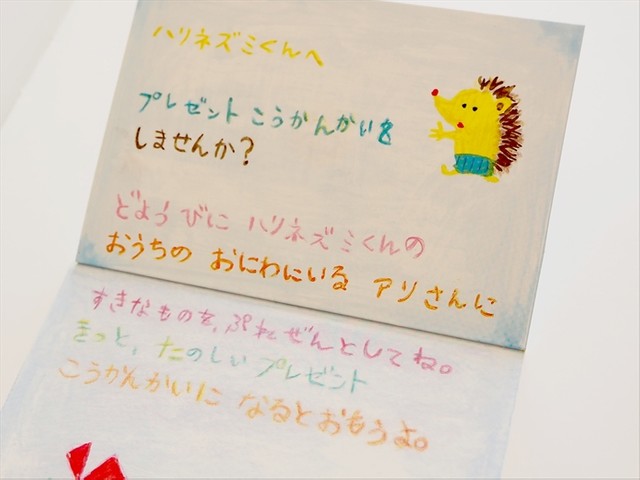 ハリネズミくんへ
プレゼントこうかんかいを
しませんか?
どようびに ハリネズミくんの
おうちの おにわにいる アリさんに
すきなものを、ぷれぜんとしてね。
きっと、たのしいプレゼント
こうかんかいに なるとおもうよ。